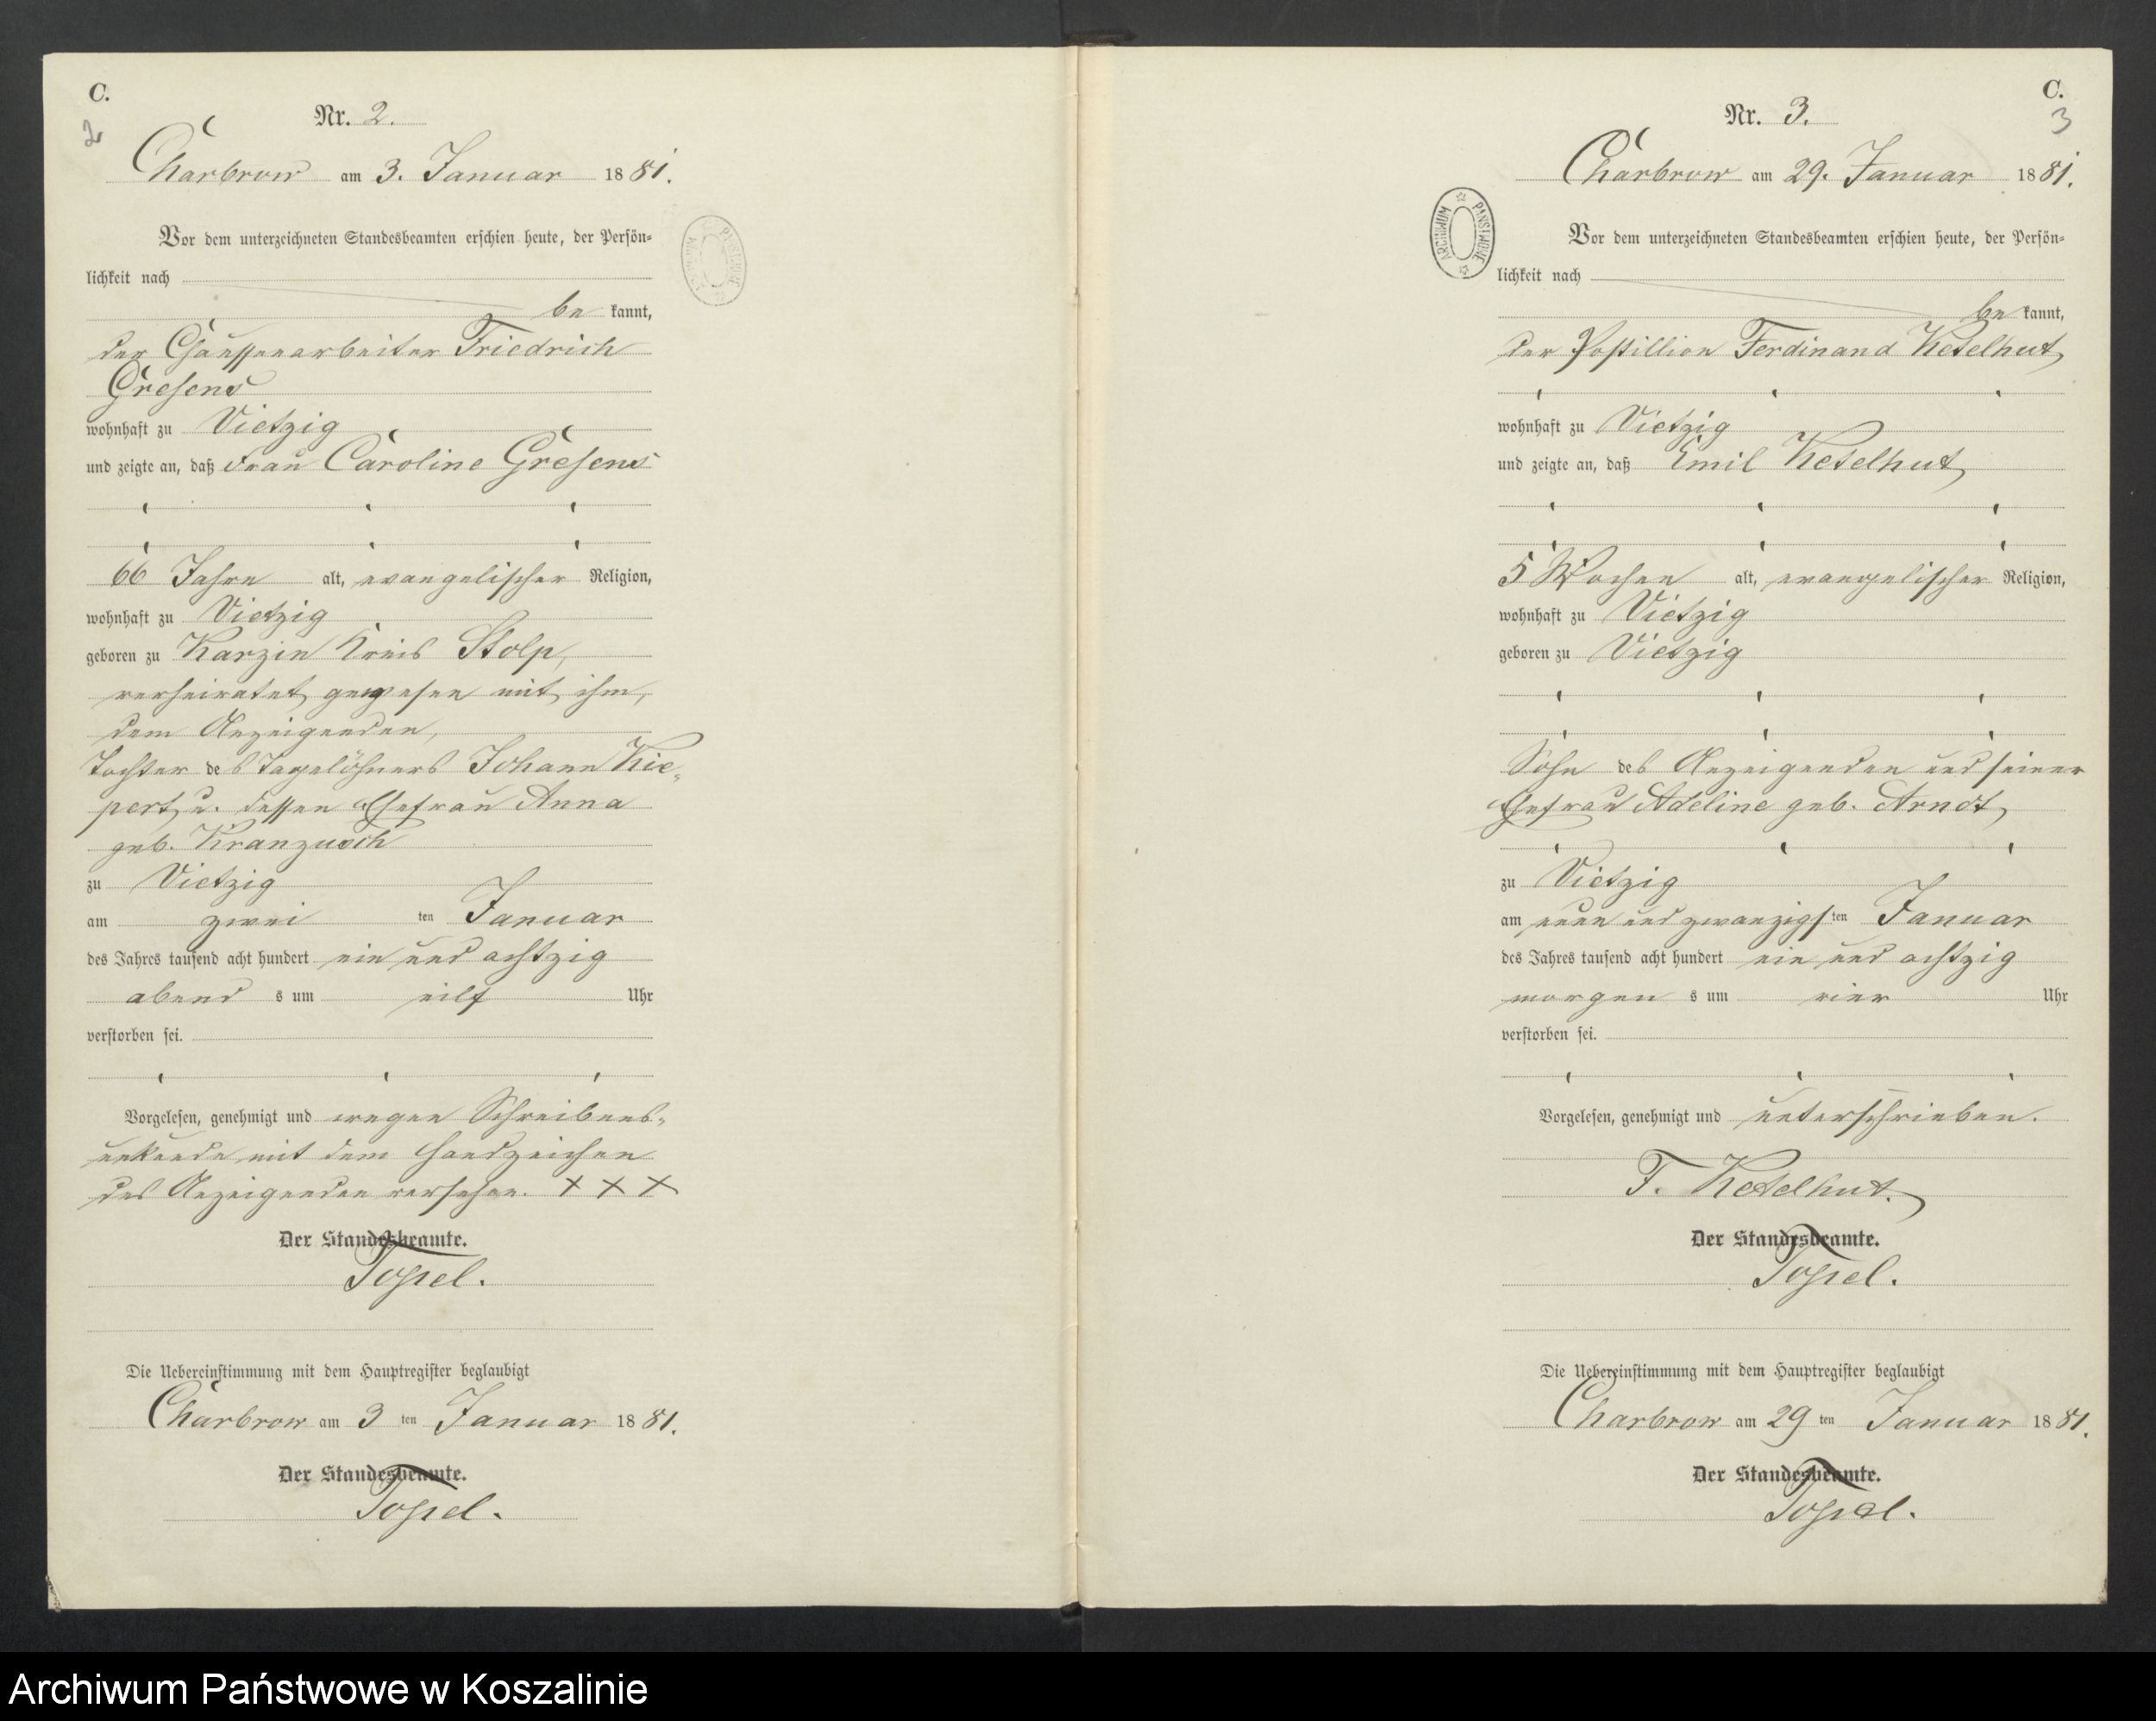 C.
2
Nr. 2.
Charbrow am 3. Januar 1881.
Vor dem unterzeichneten Standesbeamten erschien heute, der Persön=
lichkeit nach
be kannt,
der Chausseearbeiter Friedrich
Gresens
wohnhaft zu Vietzig
und zeigte an, daß Frau Caroline Gresens
66 Jahre alt, evangelischer Religion,
wohnhaft zu Vietzig
geboren zu Karzin Kreis Stolp,
verheiratet gewesen mit ihm,
dem Anzeigenden,
Tochter des Tagelöhners Johann Kie=
pert u. dessen Ehefrau Anna
geb. Kranzusch
zu Vietzig
am zwei ten Januar
des Jahres tausend acht hundert ein und achtzig
abend s um eilf Uhr
verstorben sei.
Vorgelesen, genehmigt und wegen Schreibens=
unkunde mit dem Handzeichen
des Anzeigenden versehen. XXX
Der Standesbeamte.
Die Uebereinstimmung mit dem Hauptregister beglaubigt
Charbrow am 3 ten Januar 1881.
Der Standesbeamte.
C.
3
Nr. 3.
Charbrow am 29. Januar 1881.
ARCHIWUM PAŃSTWOWE
Vor dem unterzeichneten Standesbeamten erschien heute, der Persön=
lichkeit nach
be kannt,
der Postillion Ferdinand Ketelhut,
wohnhaft zu Vietzig
und zeigte an, daß Emil Ketelhut,
5 Wochen alt, evangelischer Religion,
wohnhaft zu Vietzig
geboren zu Vietzig
Sohn des Anzeigenden und seiner
Ehefrau Adeline geb. Arndt,
zu Vietzig
am neun und zwanzigsten Januar
des Jahres tausend acht hundert ein und achtzig
morgen s um vier Uhr
verstorben sei.
Vorgelesen, genehmigt und unterschrieben.
F. Ketelhut.
Der Standesbeamte.
Die Uebereinstimmung mit dem Hauptregister beglaubigt
Charbrow am 29 ten Januar 1881.
Der Standesbeamte.
Archiwum Państwowe w Koszalinie